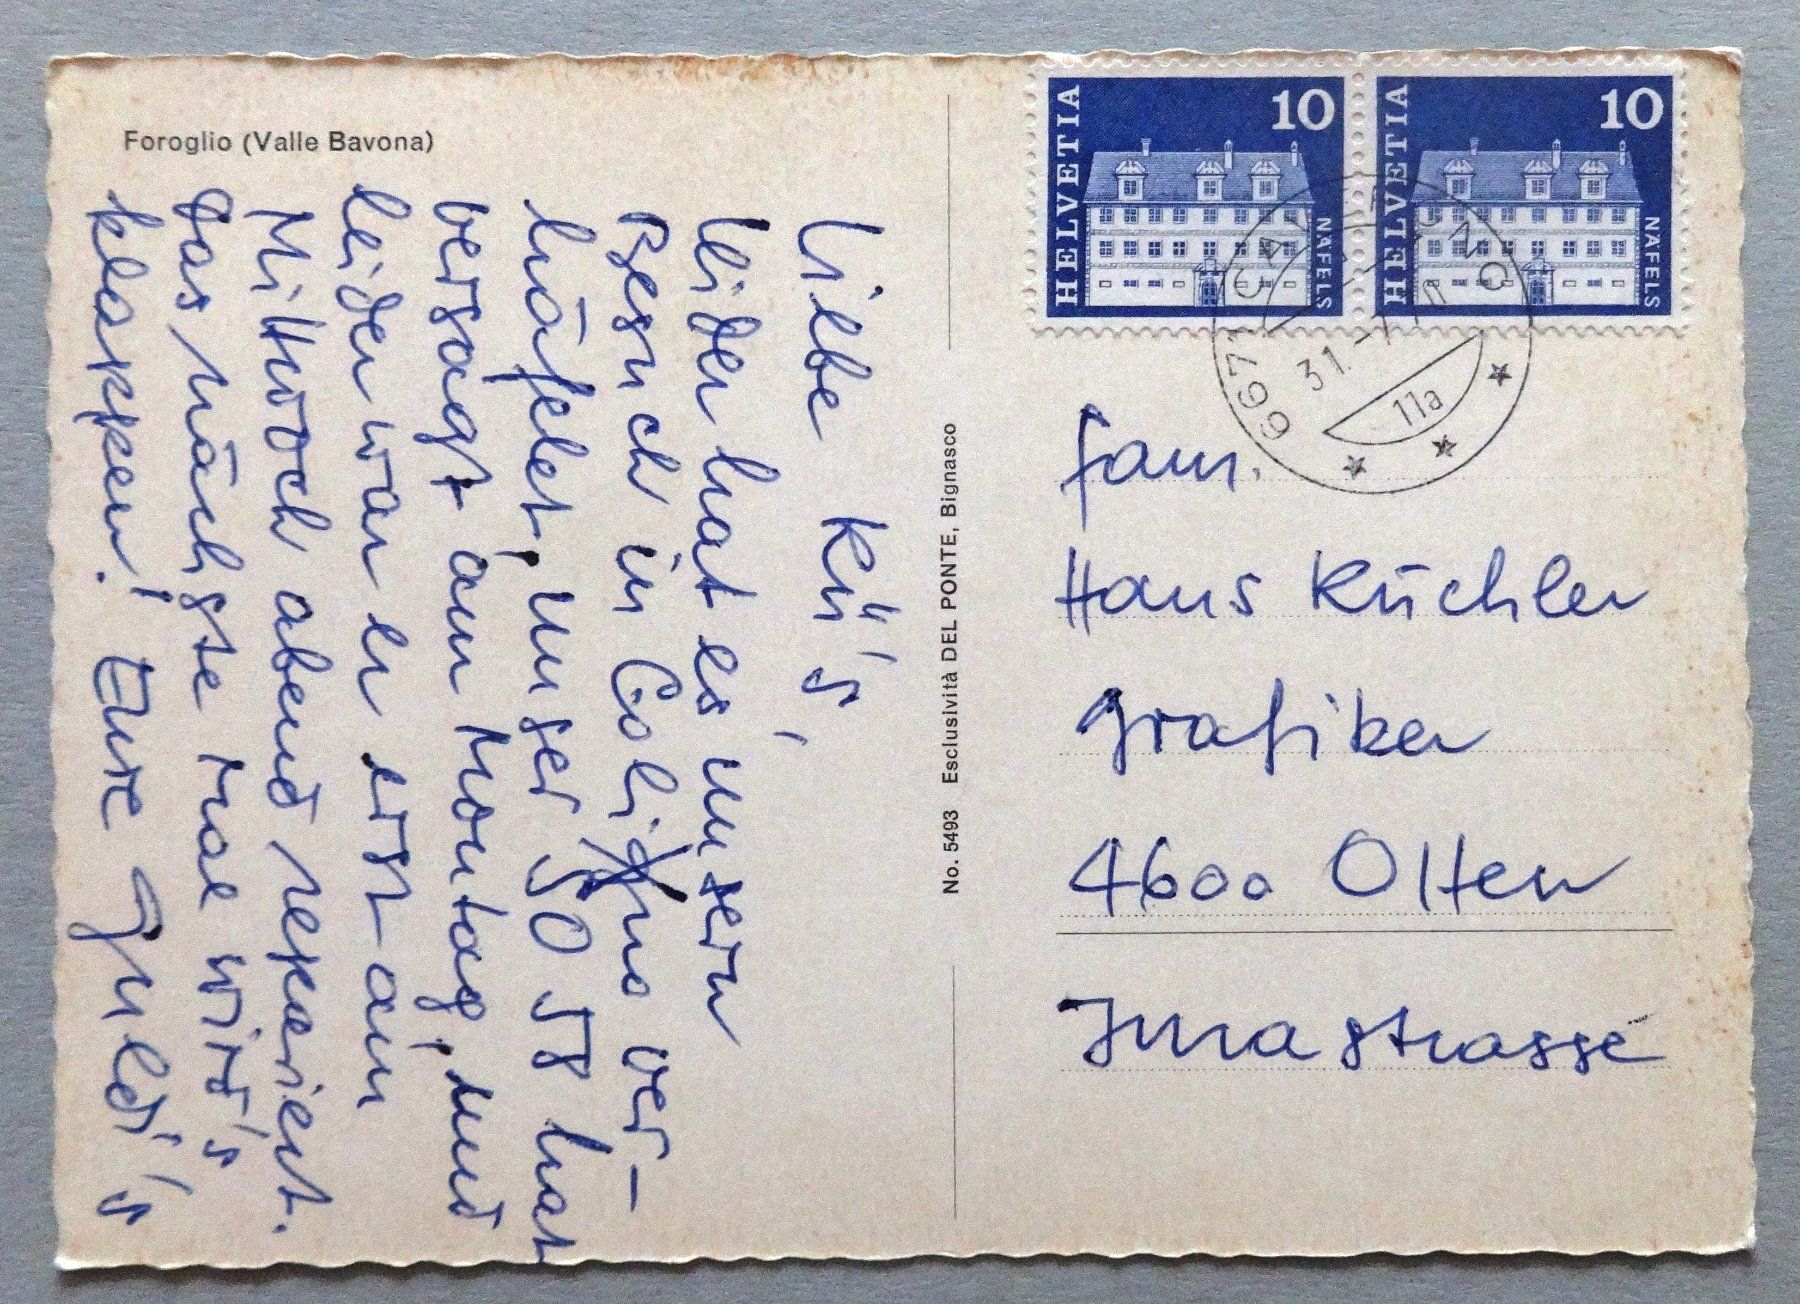 Foroglio (Valle Bavona)
Liebe Kü's,
leider hat es unsern
Besuch in Coligno ver-
häfelet, unser SO 58 hat
versagt am Montag, und
leider war er erst am
Mittwoch abend repariert.
Das nächste Mal wird's
klappen! Eure
No. 5493 Esclusività DEL PONTE, Bignasco
HELVETIA 10 NÄFELS
HELVETIA 10 NÄFELS
6671
31.
11a
Fam.
Hans Küchler
Grafiker
4600 Olten
Jurastrasse